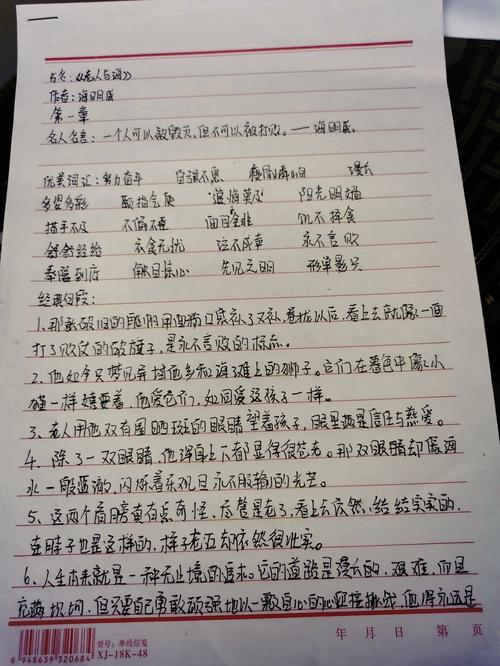 书名:《老人与海》
作者:海明威
第一章
名人名言:一个人可以被毁灭,但不可以被打败。——海明威。
优美词汇:努力奋斗 自强不息 漫长
多姿多彩 颐指气使 追悔莫及 阳光明媚
措手不及 不偏不歪 面目全非 饥不择食
舒舒经络 衣食无忧 泣不成声 永不言败
奉遵到府 触目惊心 先见之明 形单影只
经典句段:
1、那张破旧的船帆用面粉口袋补了又补,卷拢以后,看上去就像一面
打了败仗的破旗子,是永不言败的标志。
2、他如今只梦见异域他乡和海滩上的狮子。它们在暮色中像小
猫一样嬉耍着,他爱它们,如同爱这孩子一样。
3、老人用他双有圈晒斑的眼睛望着孩子,眼里满是信任与慈爱。
4、除了一双眼睛,他浑身上下都显得很苍老。那双眼睛却像海
水一般蓝澈,闪烁着乐观且永不服输的光芒。
5、这两个肩膀真有点奇怪,尽管是老了,看上去依然结结实实的,
连脖子也是这样的,样子老五却依然很壮实。
6、人生本来就是一种无止境的追求。它的道路是漫长的、艰难,而且
充满坎坷,但只要自己勇敢顽强地以一颗自信的心迎接挑战,他将永远是
型号:单线信笺
XJ-18K-48
6 948639 320684
年 月 日 第 页